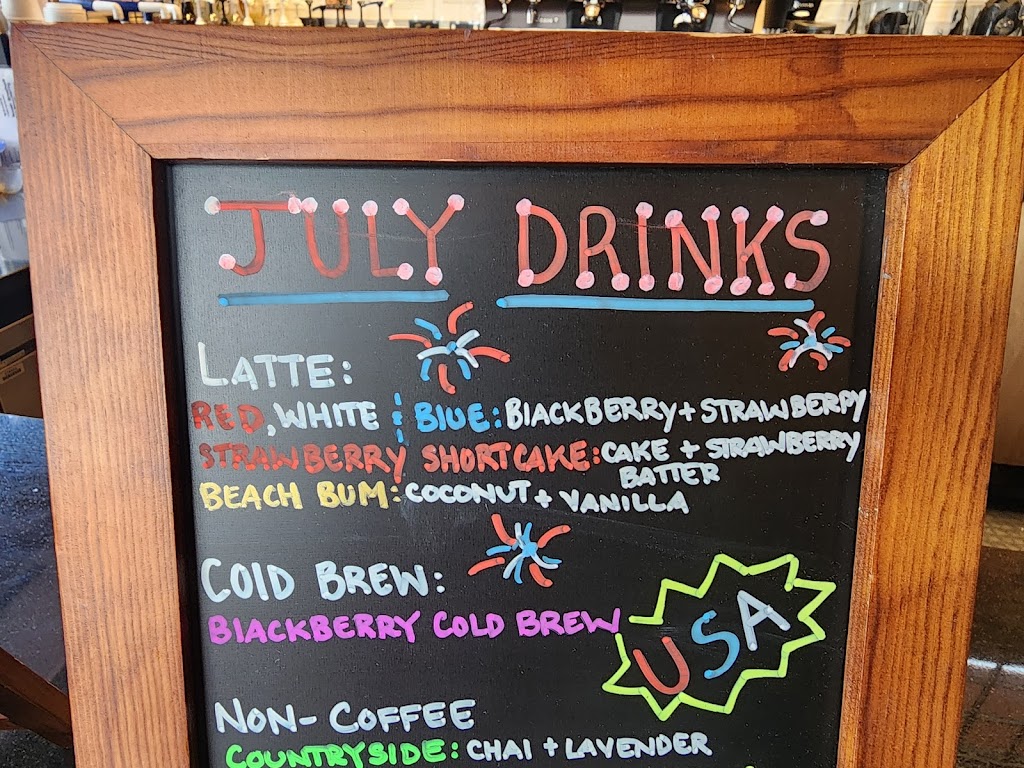 JULY DRINKS
LATTE:
RED, WHITE & BLUE: BLACKBERRY + STRAWBERRY
STRAWBERRY SHORTCAKE: CAKE + STRAWBERRY
BATTER
BEACH BUM: COCONUT + VANILLA
COLD BREW:
BLACKBERRY COLD BREW
USA
NON-COFFEE
COUNTRYSIDE: CHAI + LAVENDER